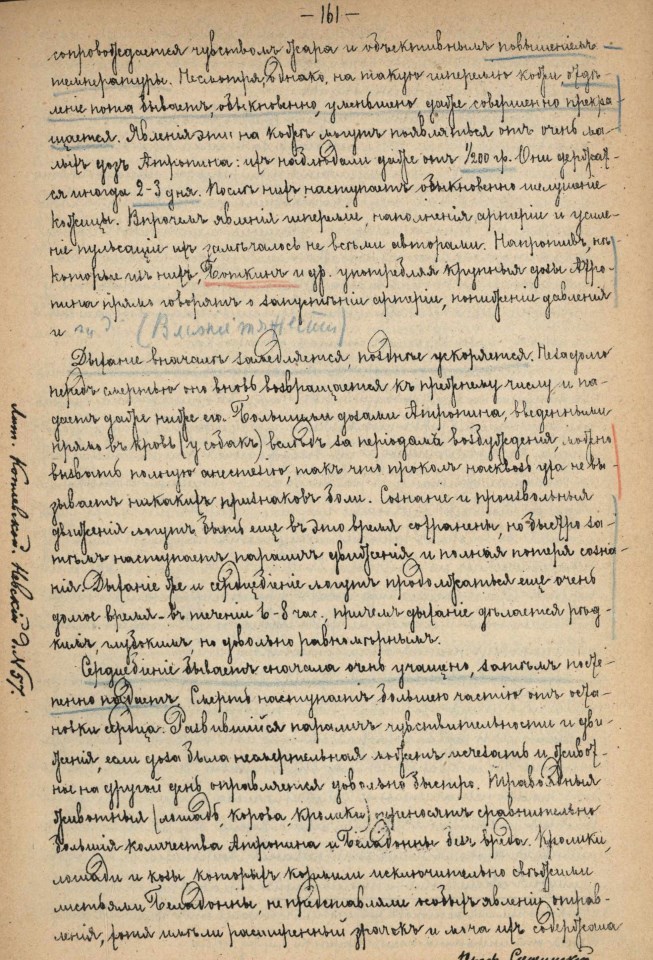 — 161 —
сопровождается чувствомъ жара и объективнымъ повышеніемъ
температуры. Несмотря, однако, на такую гиперемію кожи, отдѣ-
леніе пота бываетъ, обыкновенно, уменьшено даже совершенно прекра-
щается. Явленія эти на кожѣ могутъ появляться отъ очень ма-
лыхъ дозъ Атропина: ихъ наблюдали даже отъ 1/200 гр. Они держат-
ся иногда 2-3 дня. Послѣ нихъ наступаетъ обыкновенно шелушеніе
кожицы. Впрочемъ явленія гипереміи, наполненія артеріи и усиле-
ніе пульсаціи ихъ замѣчалось не всѣми авторами. Напротивъ, нѣ-
которые изъ нихъ, Боткинъ и др. употребляя крупныя дозы Атро-
пина прямо говорятъ о запустѣніи артеріи, пониженіе давленія
и
Дыханіе вначалѣ замедляется, позднѣе ускоряется. Незадолго
передъ смертью оно вновь возвращается къ прежнему числу и па-
даетъ даже ниже его. Большими дозами Атропина, введенными
прямо въ кровь (у собакъ) вслѣдъ за періодамъ возбужденія, можно
вызвать полную анестезію, такъ что проколъ насквозь уха не вы-
зываетъ никакихъ признаковъ боли. Сознаніе и произвольныя
движенія могутъ быть еще въ это время сохранены, но быстро за-
тѣмъ наступаетъ параличъ движенія и полная потеря созна-
нія. Дыханіе же и сердцебіеніе могутъ продолжаться еще очень
долгое время - въ теченіи 6-8 час., причемъ дыханіе дѣлается рѣд-
кимъ, глубокимъ, но довольно равномѣрнымъ.
Сердцебіеніе бываетъ сначала очень учащено, затѣмъ посте-
пенно падаетъ. Смерть наступаетъ большею частію отъ оста-
новки сердца. Развившійся параличъ чувствительности и дви-
женія, если доза была несмертельная можетъ исчезать и живот-
ное на другой день оправляется довольно быстро. Травоядныя
животныя (лошадь, корова, кролики) переносятъ сравнительно
большія количества Атропина и Беладонны безъ вреда. Кролики,
лошади и козы, которыхъ кормили исключительно свѣжими
листьями Беладонны, не представляли особыхъ явленій отрав-
ленія, хотя имѣли расширенный зрачокъ и моча ихъ содержала
Проф.
Лит. Невскій д. N 57.